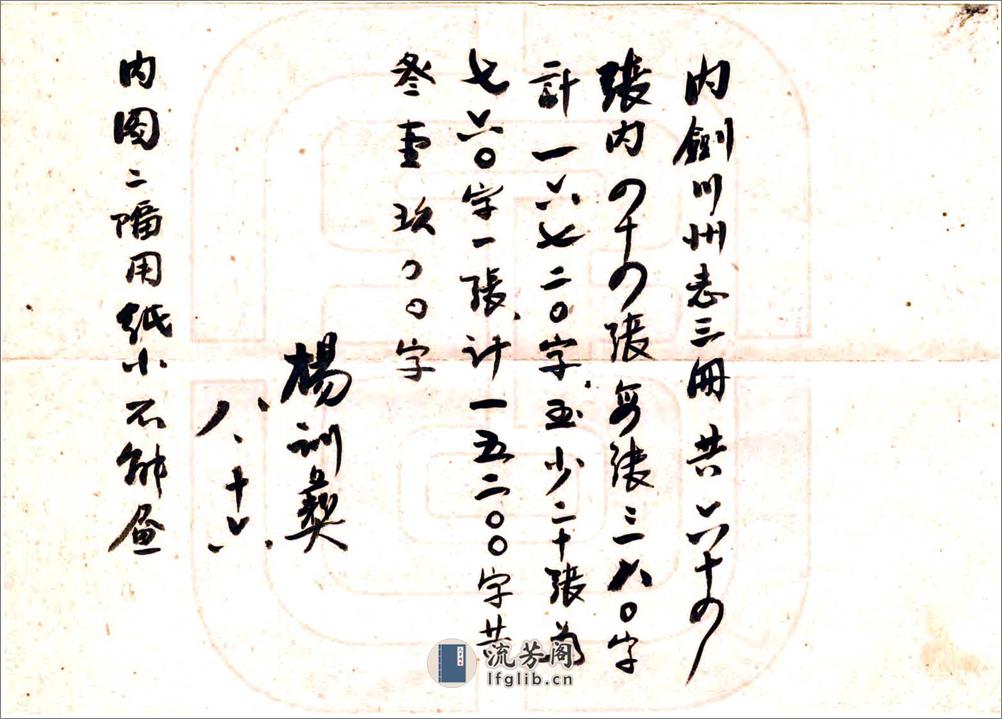 内劍川州志三冊共六十四
張内四十四張每張三八〇字
計一六七二〇字至少二十張為
七六〇字一張計一五二〇〇字共
叁壹玖〇〇字
楊訓
八、十六、
内图二幅用紙小不能画
流芳阁
lfglib.cn